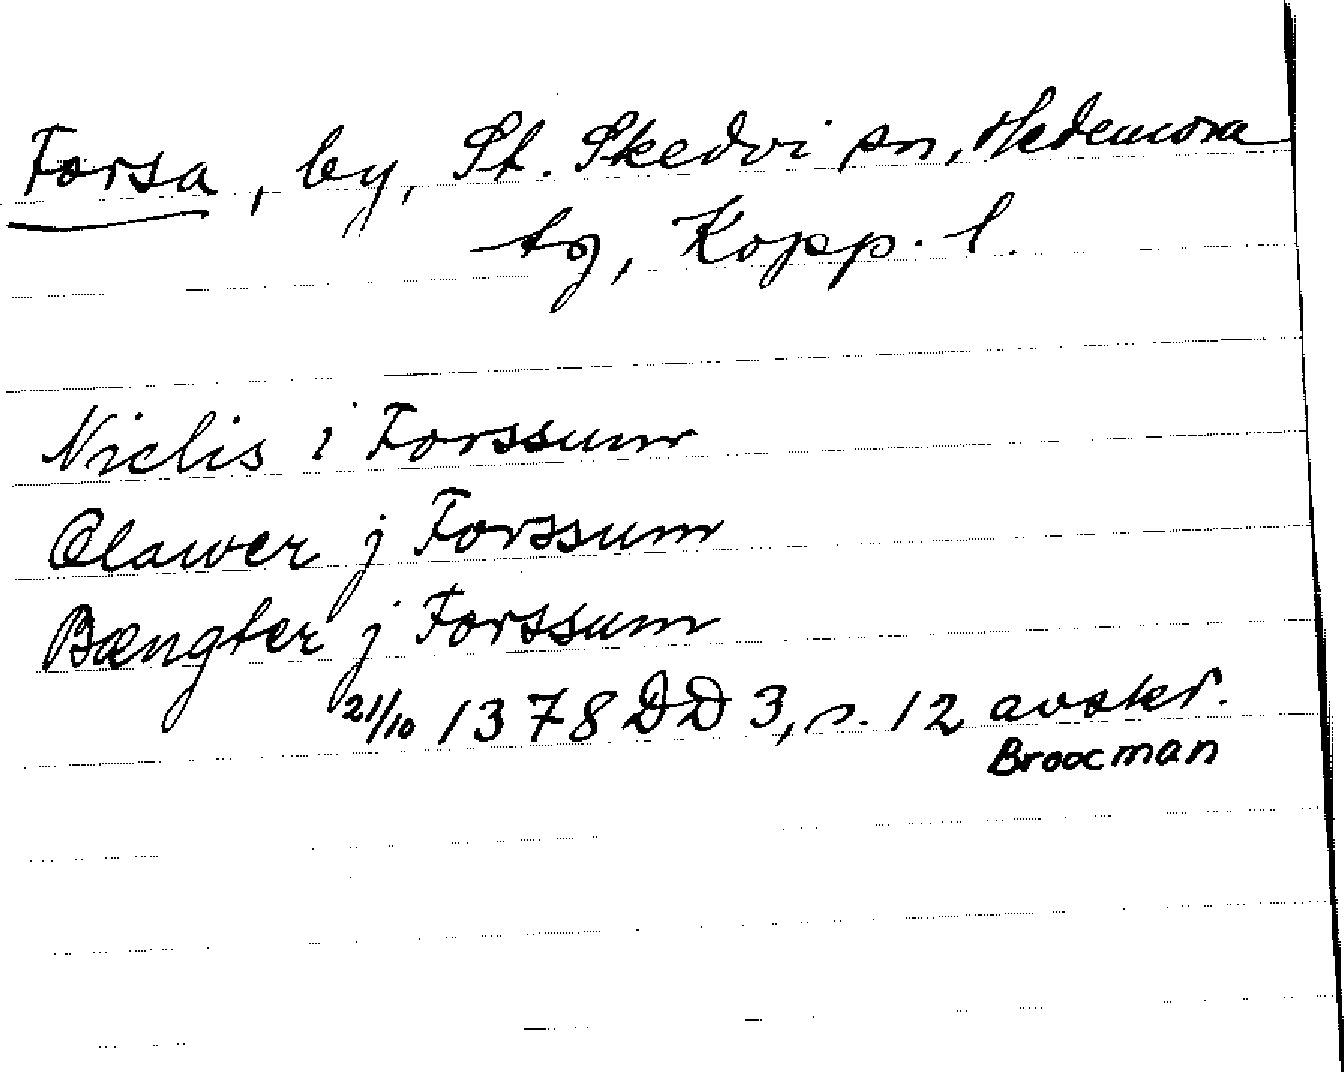 Forsa, by, St. Skedvi sn, Hedemora
tg, Kopp. l.
Niclis i Forssum
Olawer j Forssum
Bængter j Forssum
21/10 1378 DD 3, s. 12 avskr.
Broocman